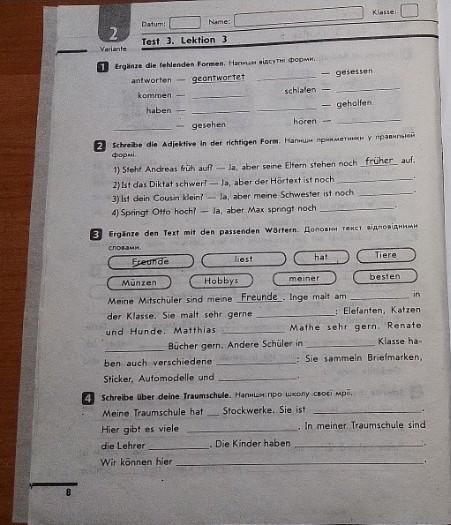 2
Variante
Datum: Name: Klasse:
Test 3. Lektion 3
1 Ergänze die fehlenden Formen. Напиши відсутні форми.
antworten — geantwortet — gesessen
kommen — schlafen —
haben — — geholfen
— gesehen hören —
2 Schreibe die Adjektive in der richtigen Form. Напиши прикметники у правильній
формі.
1) Steht Andreas früh auf? — Ja, aber seine Eltern stehen noch früher auf.
2) Ist das Diktat schwer? — Ja, aber der Hörtext ist noch .
3) Ist dein Cousin klein? — Ja, aber meine Schwester ist noch .
4) Springt Otto hoch? — Ja, aber Max springt noch .
3 Ergänze den Text mit den passenden Wörtern. Доповни текст відповідними
словами.
Freunde liest hat Tiere
Münzen Hobbys meiner besten
Meine Mitschüler sind meine Freunde . Inge malt am in
der Klasse. Sie malt sehr gerne : Elefanten, Katzen
und Hunde. Matthias Mathe sehr gern. Renate
Bücher gern. Andere Schüler in Klasse ha-
ben auch verschiedene : Sie sammeln Briefmarken,
Sticker, Automodelle und .
4 Schreibe über deine Traumschule. Напиши про школу своєї мрії.
Meine Traumschule hat Stockwerke. Sie ist .
Hier gibt es viele . In meiner Traumschule sind
die Lehrer . Die Kinder haben .
Wir können hier .
8